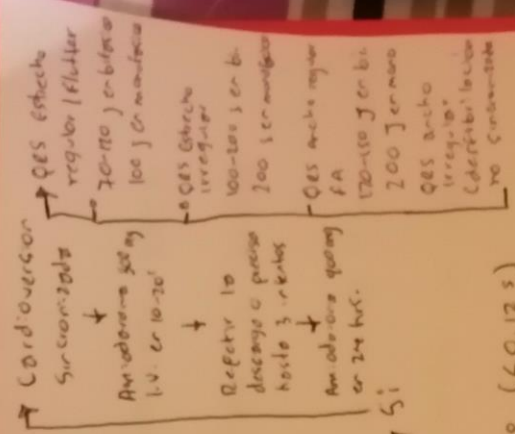 Cardioversion
Sincronizada
↓
Amiodarona 300 mg
I.V. en 10-20'
↓
Repetir la
descarga
hasta 3 intentos
↓
Amiodarona 900 mg
en 24 hrs.
QRS Estrecho
regular / Flutter
70-120 J en bifásico
100 J en monofásico
QRS Estrecho
irregular
200 J en monofásico
QRS ancho regular
FA
120-150 J en bi.
200 J en mono
QRS ancho
irregular
(desfibrilación
no sincronizada
Si